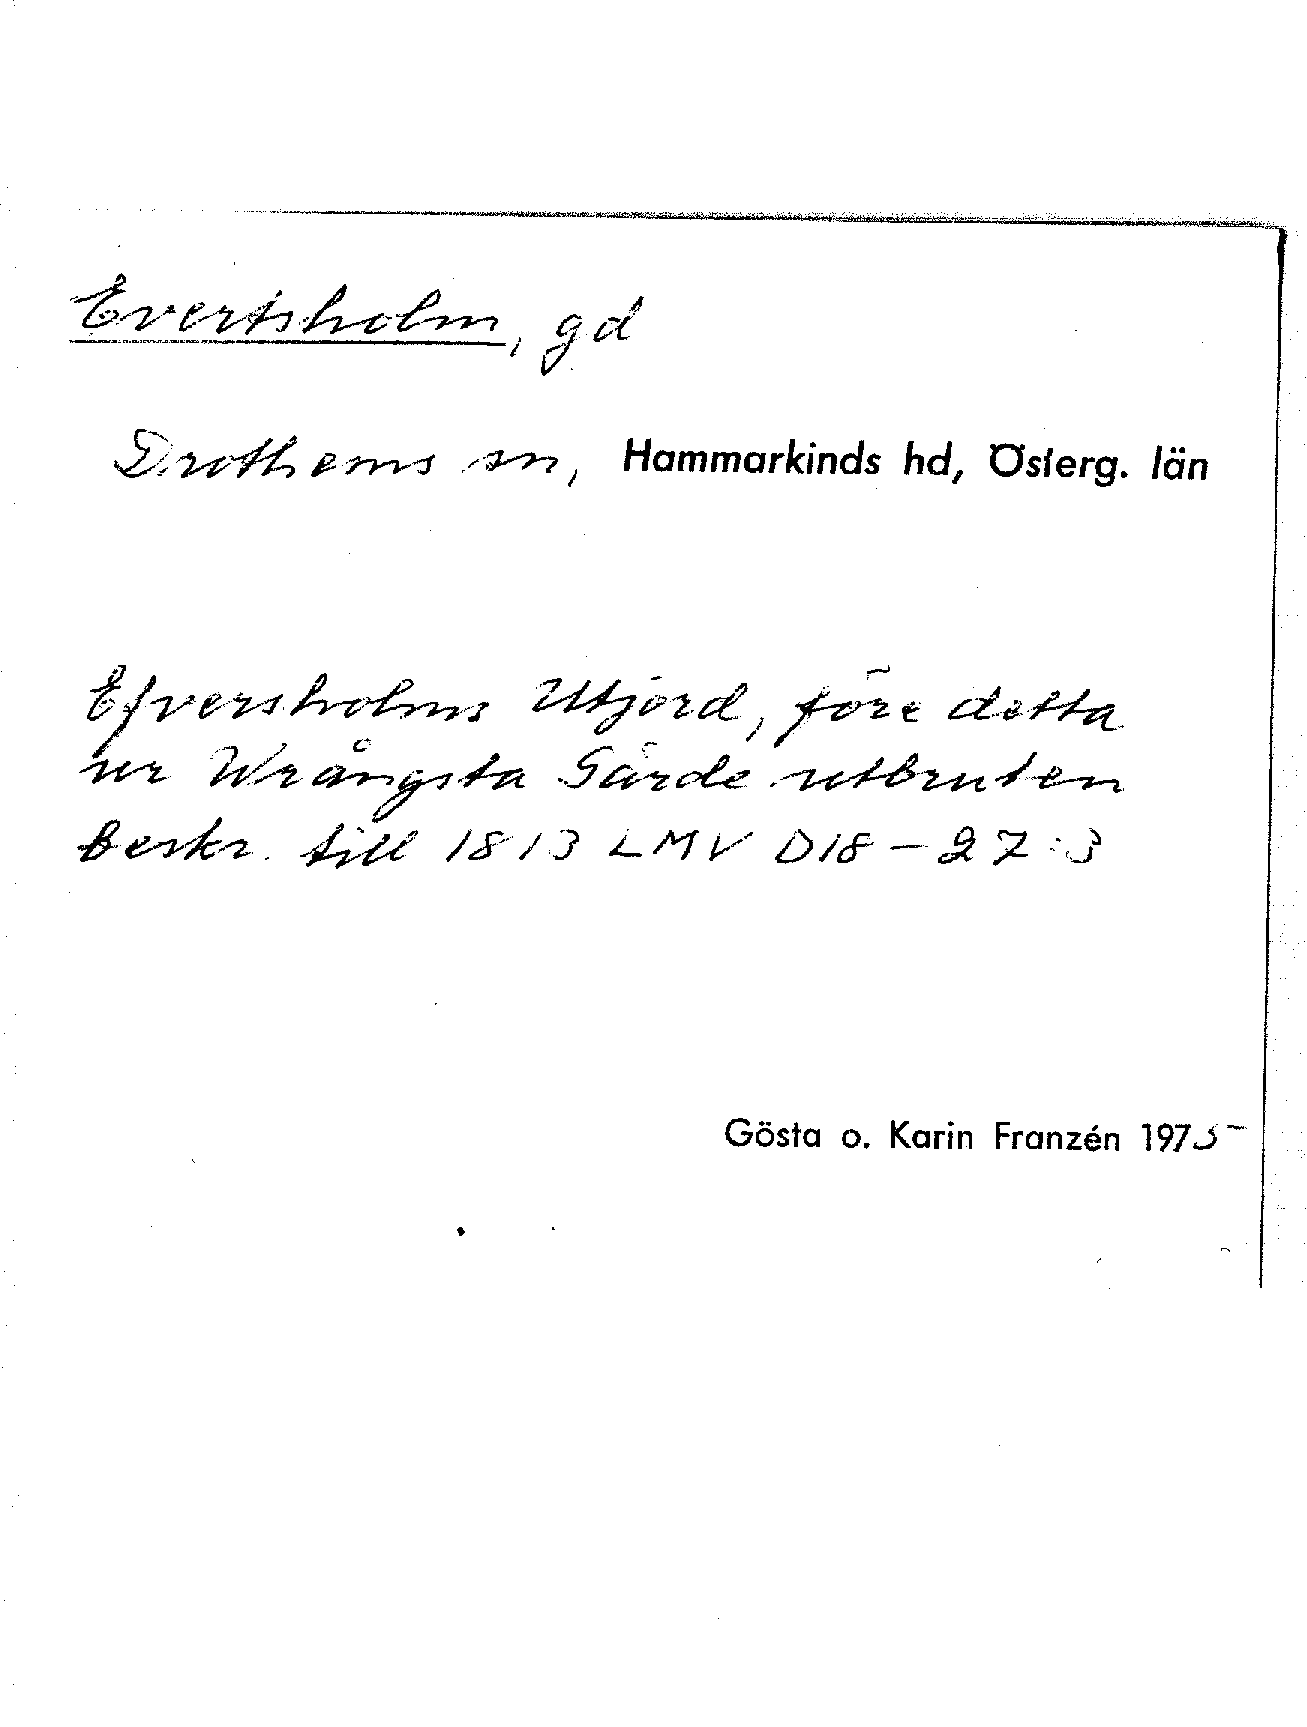 Evertsholm, gd
Drothems sn, Hammarkinds hd, Österg. län
Efversholms Utjord, före detta
ur Wrångsta Gärde utbruten
beskr. till 1813 LMV D18-27:3
Gösta o. Karin Franzén 1975